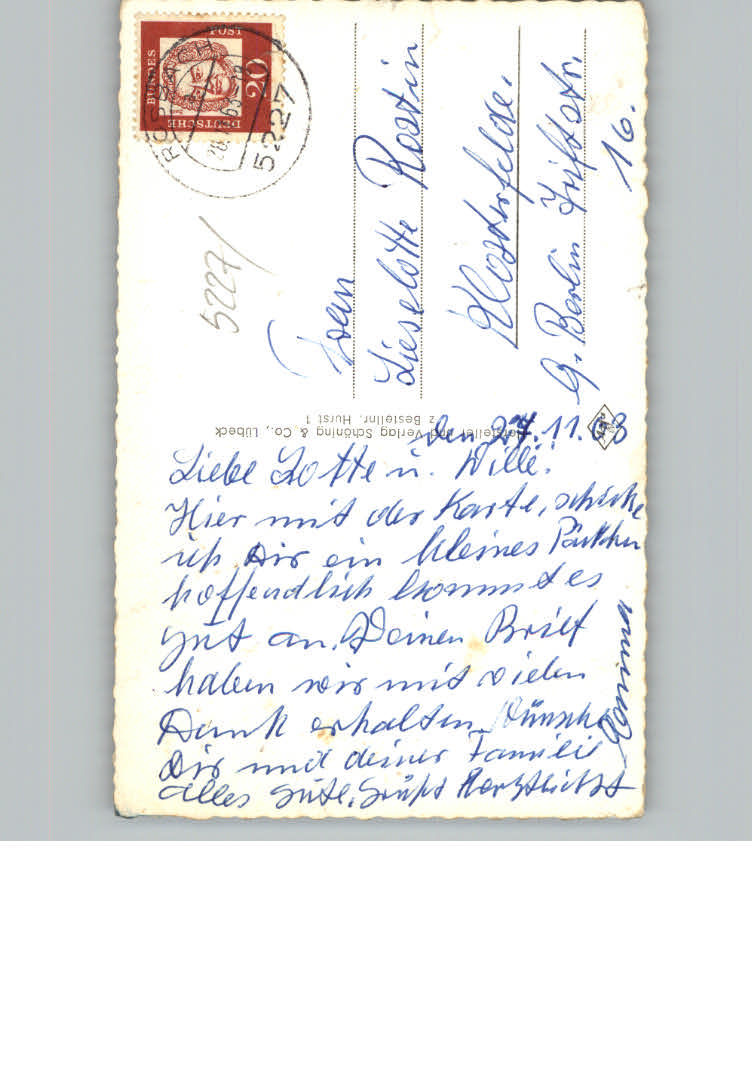 den 27.11.63
Liebe Lotte u. Wille!
Hier mit der Karte, schicke
ich Dir ein kleines Päckchen
hoffendlich kommt es
gut an. Deinen Brief
haben wir mit vielen
Dank erhalten. Wünsche
Dir und deiner Familie
alles gute. Grüßt Herzlichst
Frau
Lieselotte Rostin
Klosterfelde.
b. Berlin
16.
Hersteller und Verlag Schöning & Co., Lübeck
z Bestellnr. Hurst 1
DEUTSCHE BUNDESPOST
20
ROSBACH
5227
5227/